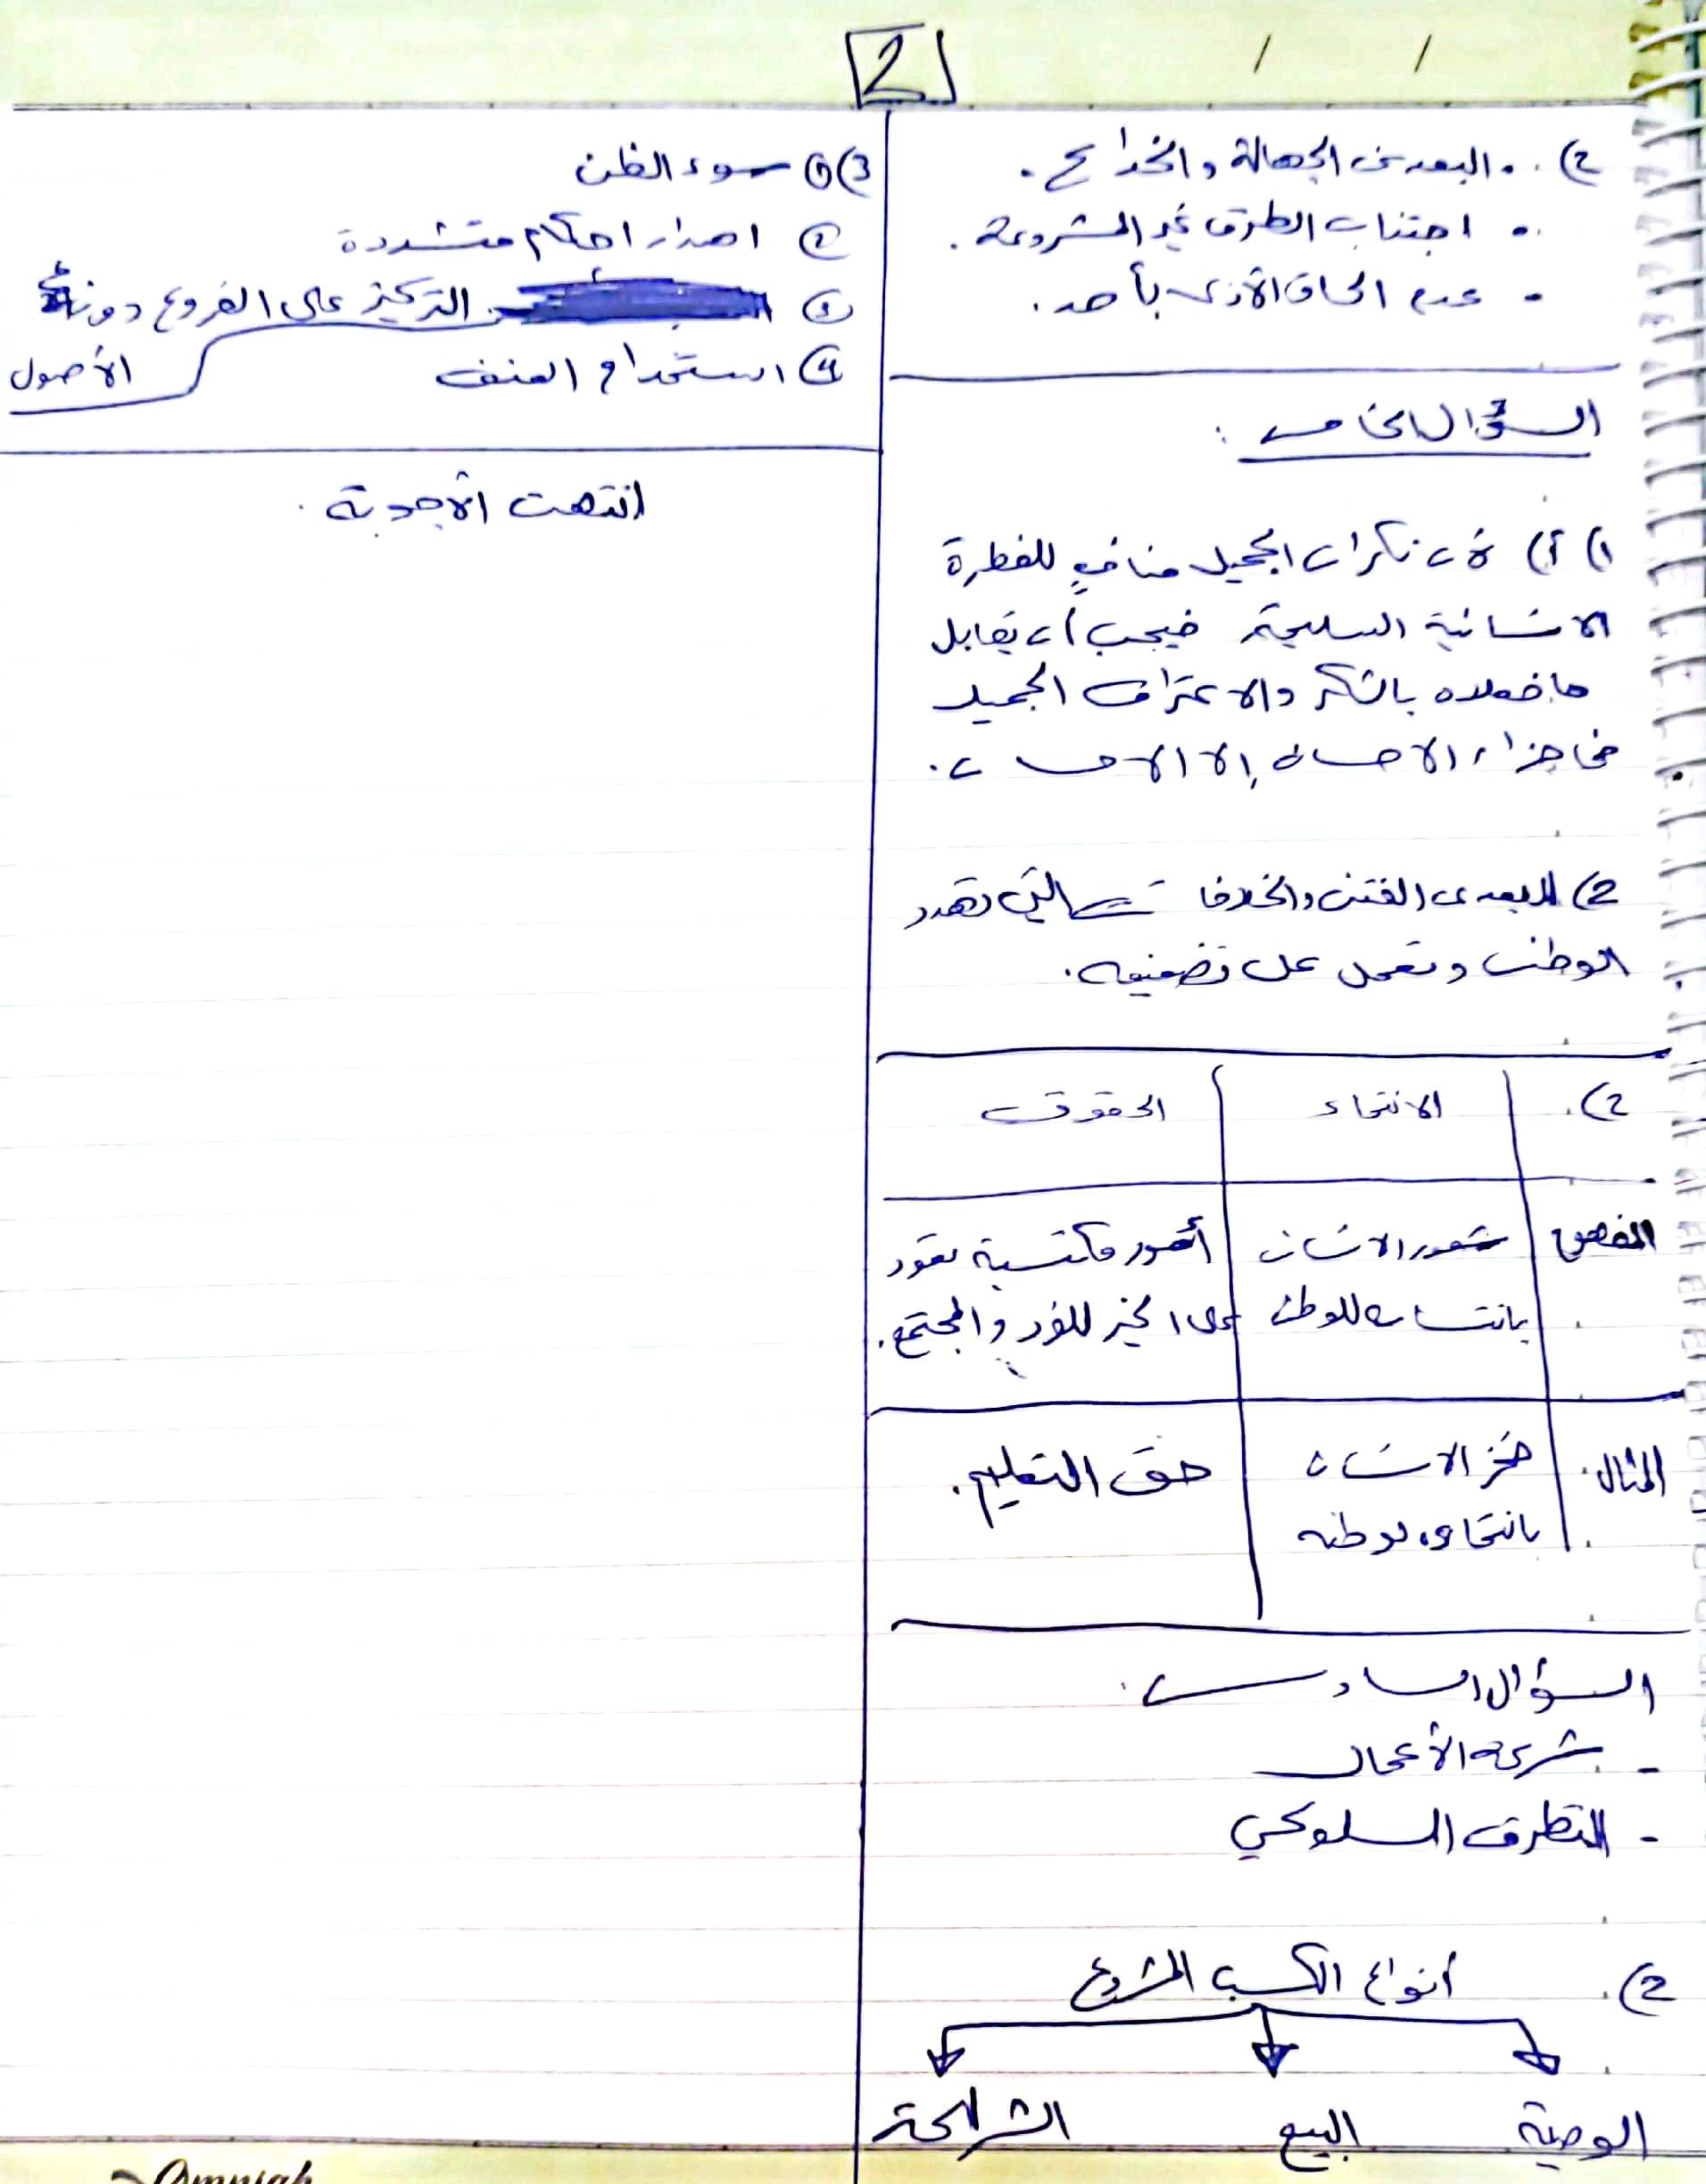 2
2) • البعد عن الجهالة والخداع .
• اجتناب الطرق غير المشروعة .
- عدم الحاق الأذى بأحد .
السؤال الخامس :
1) أ) لأن نكران الجميل منافٍ للفطرة
الانسانية السليمة فيجب أن يقابل
ما فعلاه بالشكر والاعتراف الجميل
فما جزاء الاحسان إلا الاحسان .
2) للبعد عن الفتن والخلافات التي تهدد
الوطن وتعمل على تضعيفه .
2) . الانتماء الحقوق
المفهوم شعور الانسان أمور مكتسبة تعود
بانتسابه للوطن على الخير للفرد والمجتمع .
المثال فخر الانسان حق التعليم .
بانتماءه لوطنه
السؤال السادس :
- شركة الأعمال
- التطرف السلوكي
2) . أنواع الكسب المشروع
الوصية البيع الشراكة
3) ① سوء الظن
② اصدار احكام متشددة
③ التركيز على الفروع دون
الأصول
④ استخدام العنف
انتهت الأجوبة .
Omniah